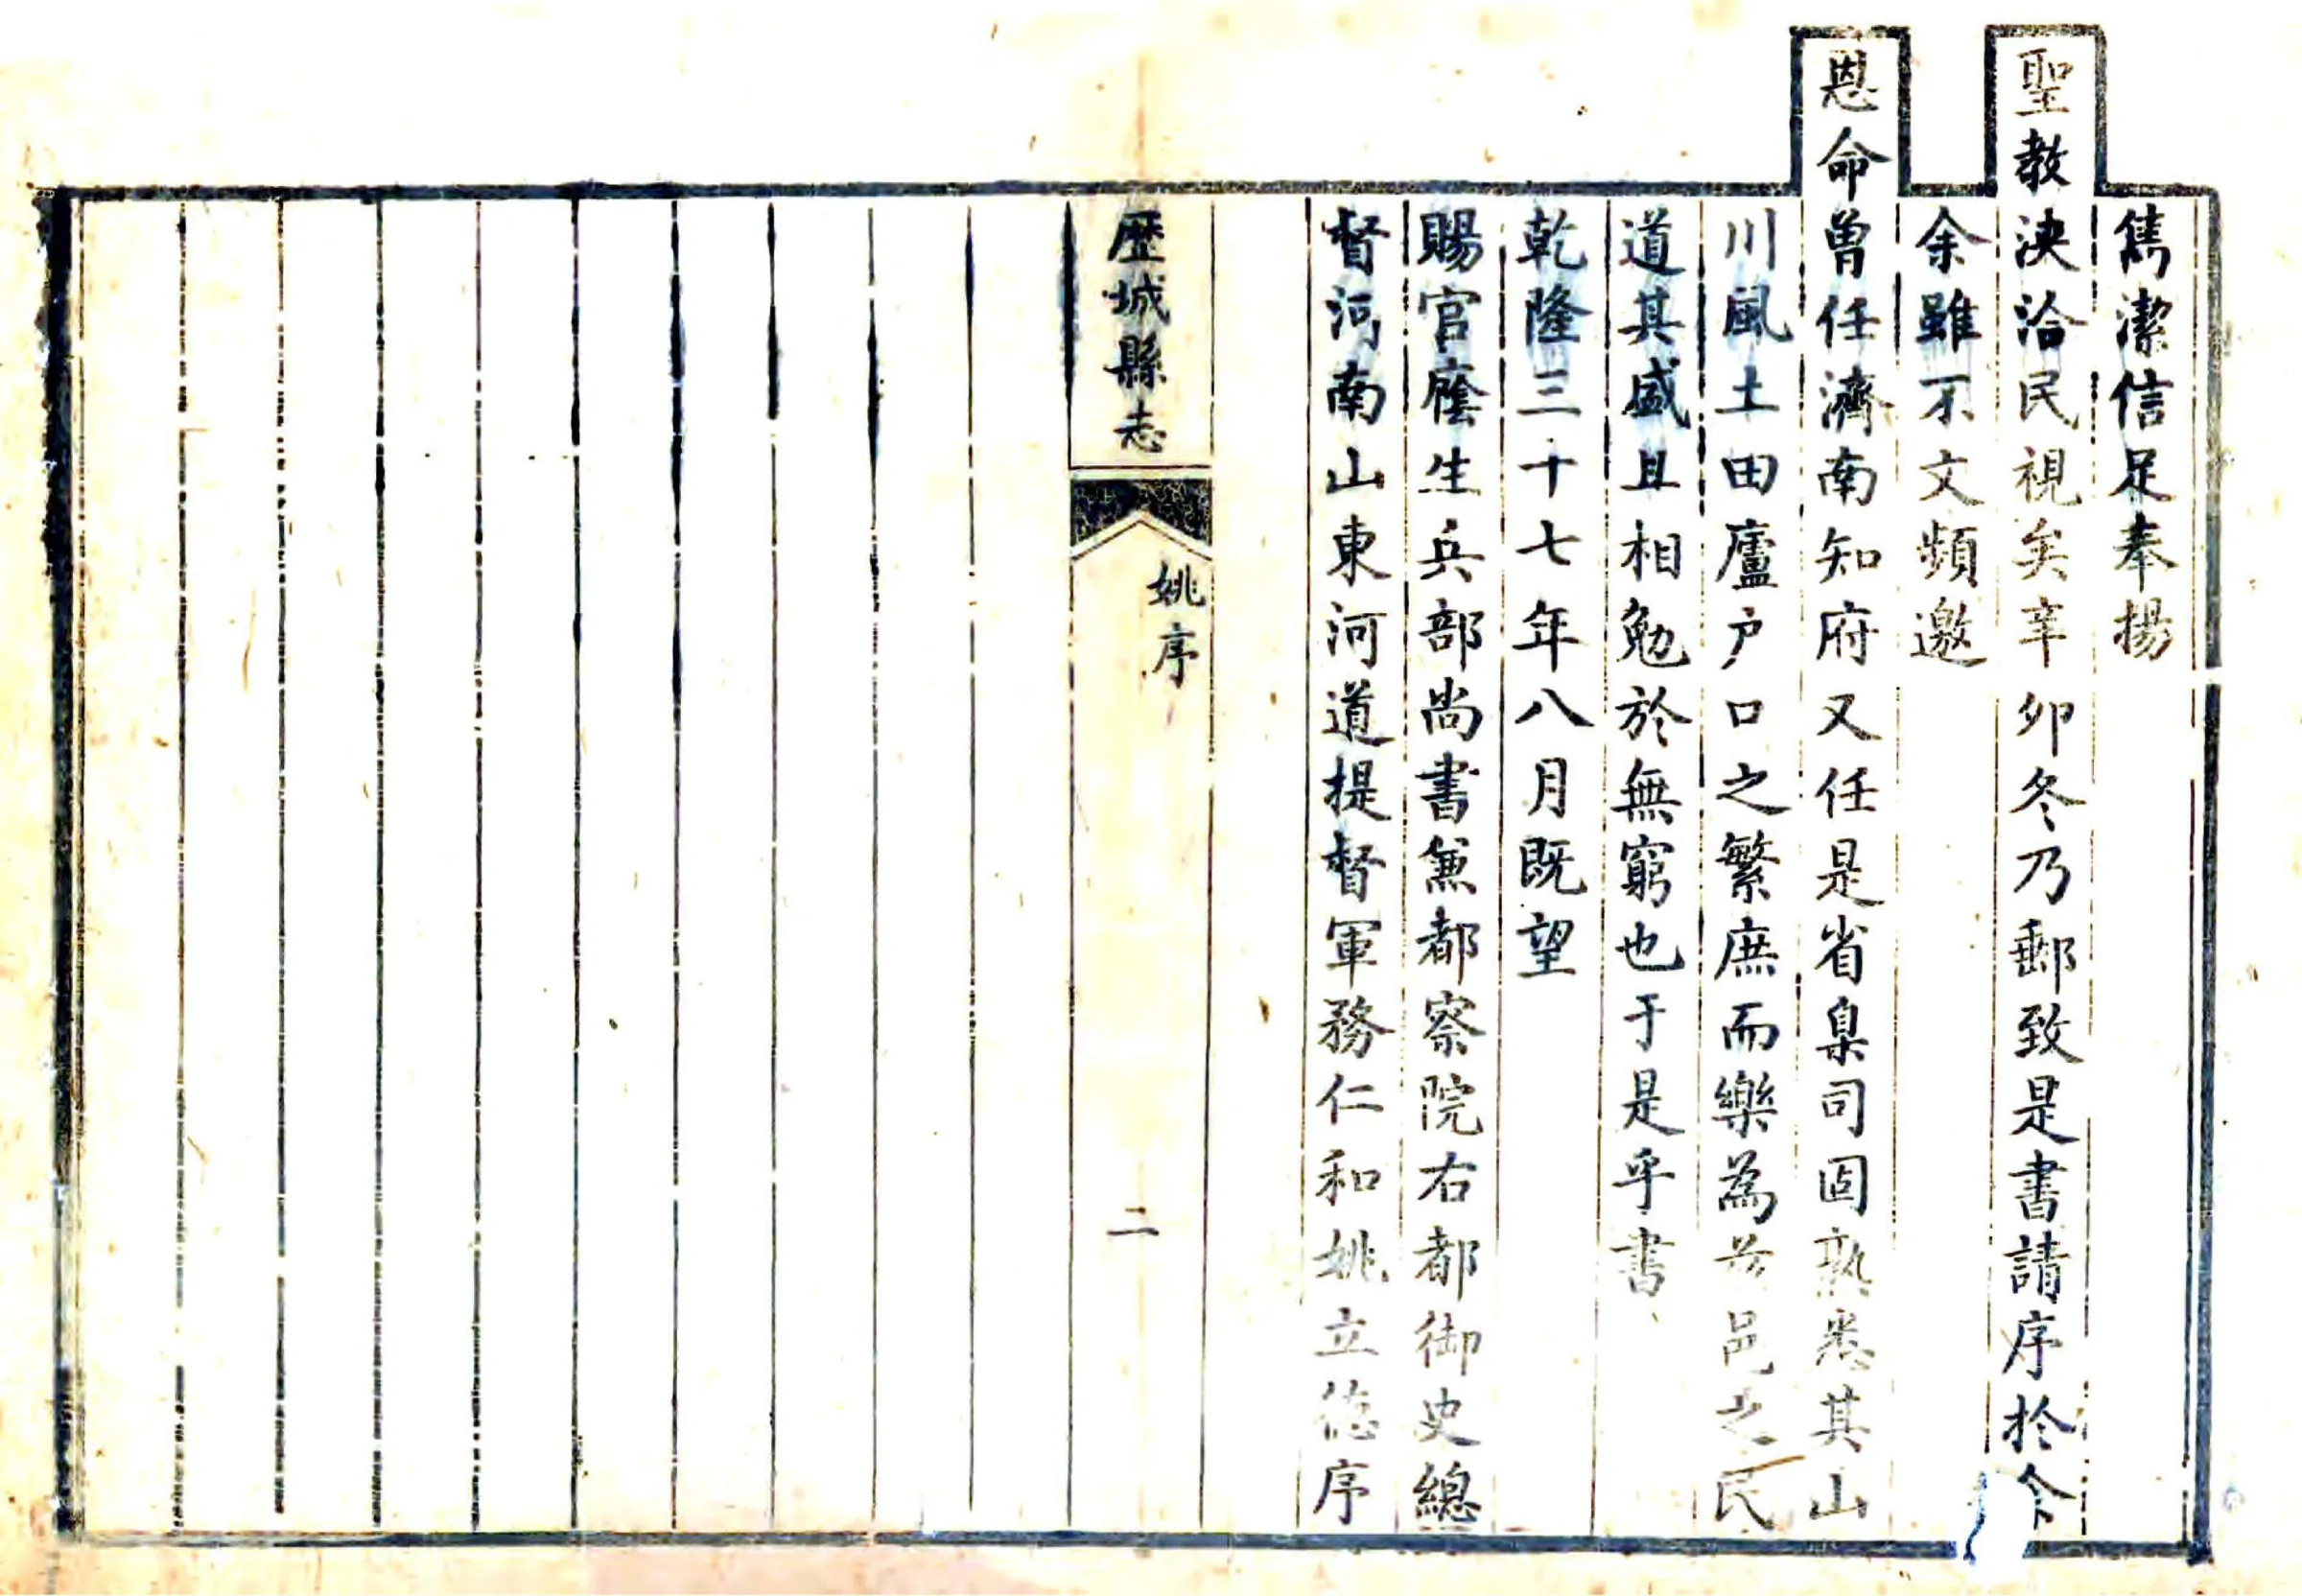 雋潔信足奉揚
聖教浹洽民視矣辛卯冬乃郵致是書請序於余
余雖不文頻邀
恩命曾任濟南知府又任是省臬司固熟悉其山
川風土田廬戶口之繁庶而樂為茲邑之民
道其盛且相勉於無窮也于是乎書
乾隆三十七年八月既望
賜官廕生兵部尚書兼都察院右都御史總
督河南山東河道提督軍務仁和姚立德序
歷城縣志
姚序
二